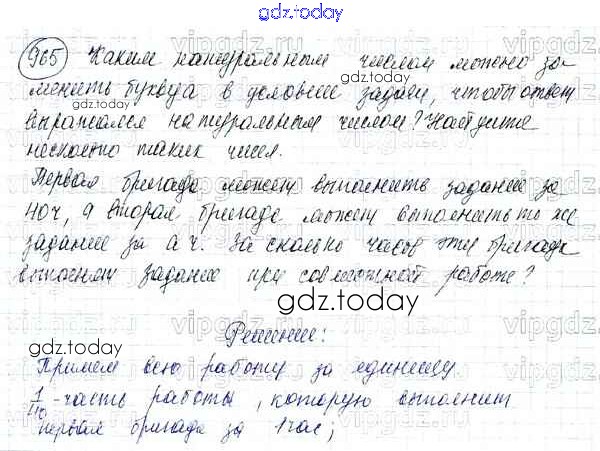 gdz.today
965 Каким натуральным числом можно за-
gdz.today
менить букву а в условие задачи, чтобы ответ
выражался натуральным числом? Найдите
несколько таких чисел.
Первая бригада может выполнить задание за
40ч, а вторая бригада может выполнить то же
задание за а ч. За сколько часов эти бригады
выполнят задание при совместной работе?
gdz.today
Решение:
gdz.today
Примем всю работу за единицу
1/40 - часть работы, которую выполнит
первая бригада за 1час;
gdz.today